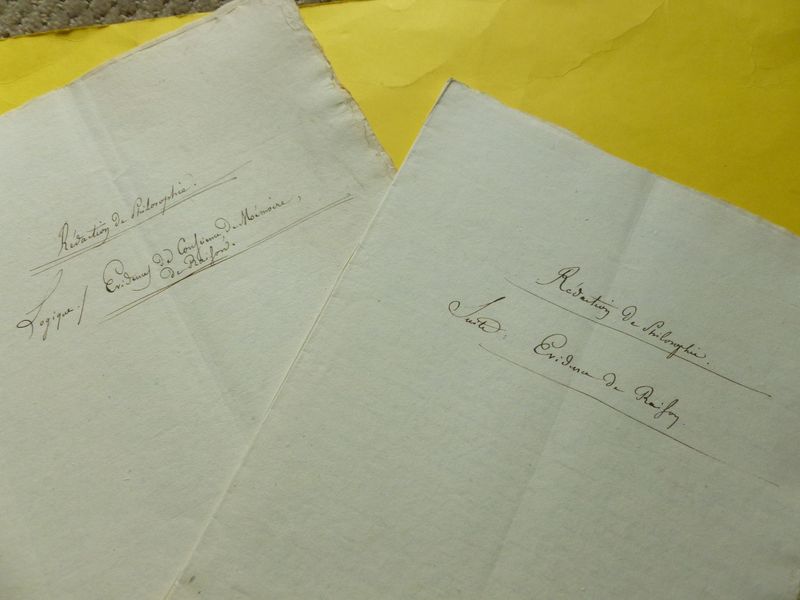 Rédaction de Philosophie.
Logique / Evidence de Conscience, de Mémoire,
de Raison.
Rédaction de Philosophie.
Suite. Evidence de Raison.